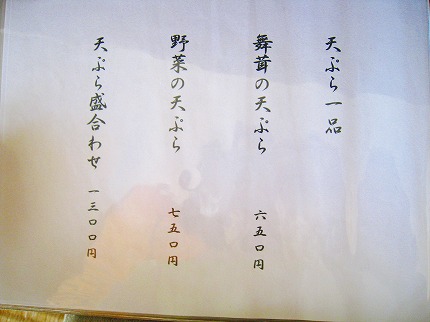 天ぷら一品
舞茸の天ぷら 六五〇円
野菜の天ぷら 七五〇円
天ぷら盛合わせ 一三〇〇円